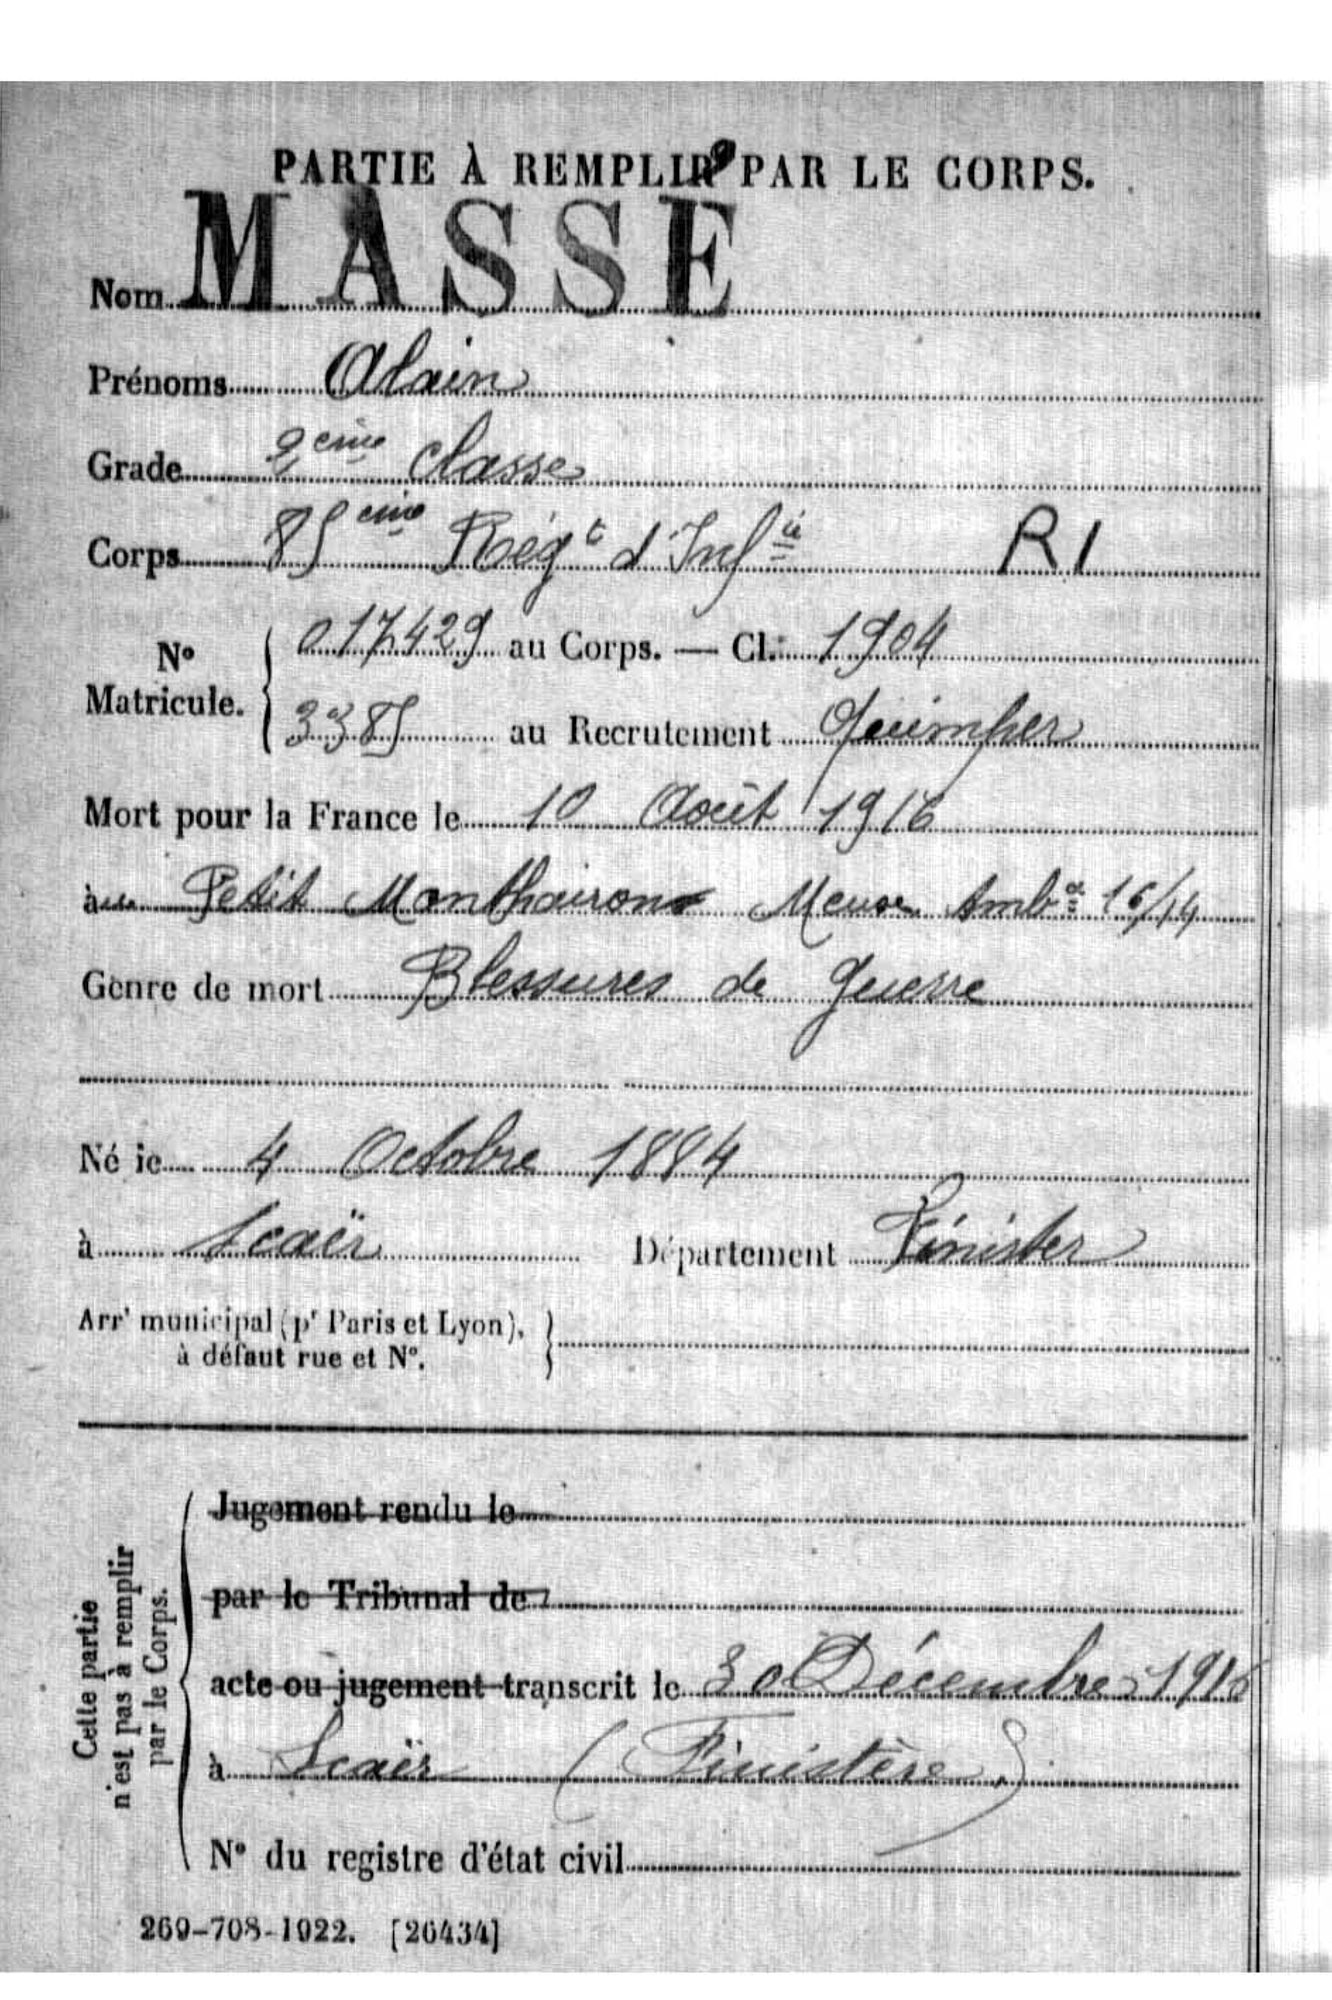 PARTIE À REMPLIR PAR LE CORPS.
Nom MASSE
Prénoms Alain
Grade 2ème classe
Corps 85ème Régt d'Infie RI
N° Matricule. { 017429 au Corps. — Cl. 1904
3385 au Recrutement Quimper
Mort pour la France le 10 Août 1916
à Petit Monthairon Meuse Ambce 16/14
Genre de mort Blessures de Guerre
Né le 4 Octobre 1884
à Scaër Département Finister
Arrt municipal (pr Paris et Lyon),
à défaut rue et N°.
Cette partie
n'est pas à remplir
par le Corps.
Jugement rendu le
par le Tribunal de
acte ou jugement transcrit le 30 Décembre 1916
à Scaër (Finistère)
N° du registre d'état civil
269-708-1922. [26434]